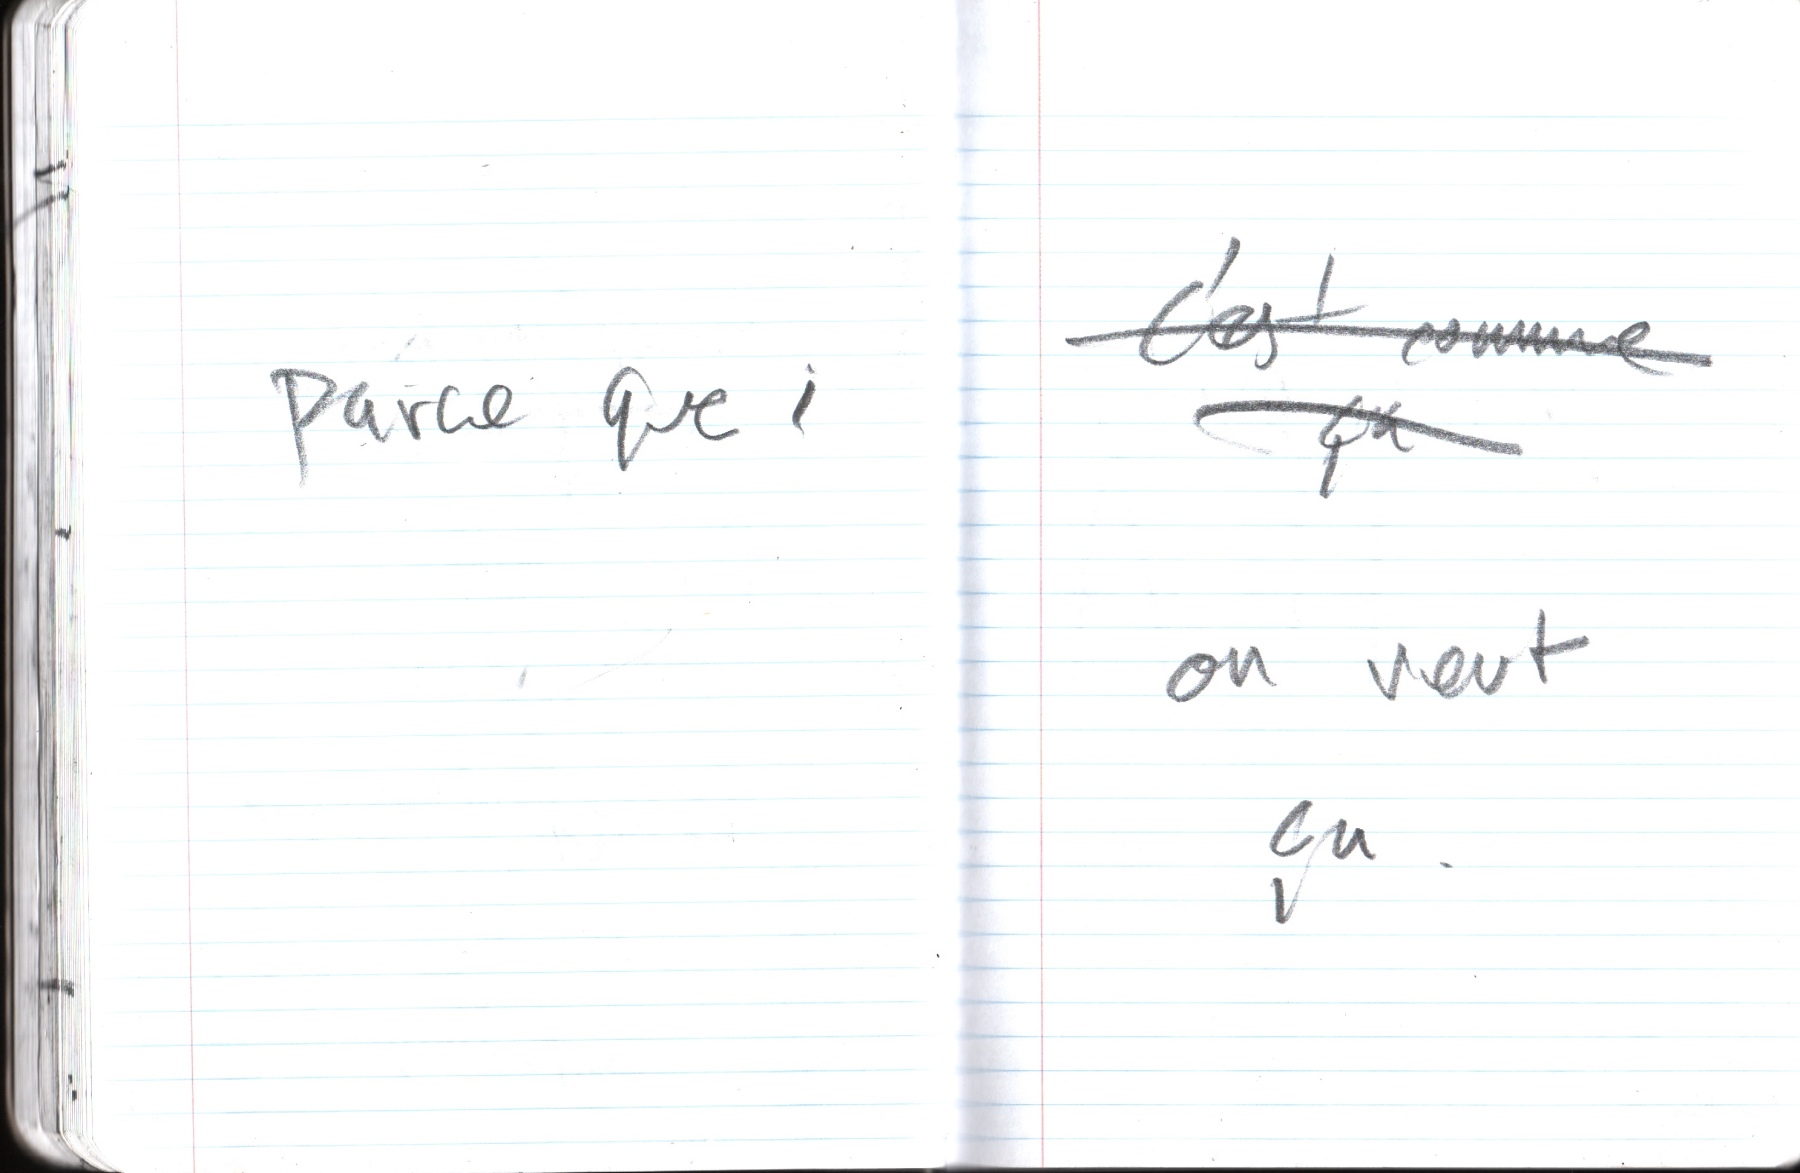 parce que i
c'est comme
ça
on veut
ça.